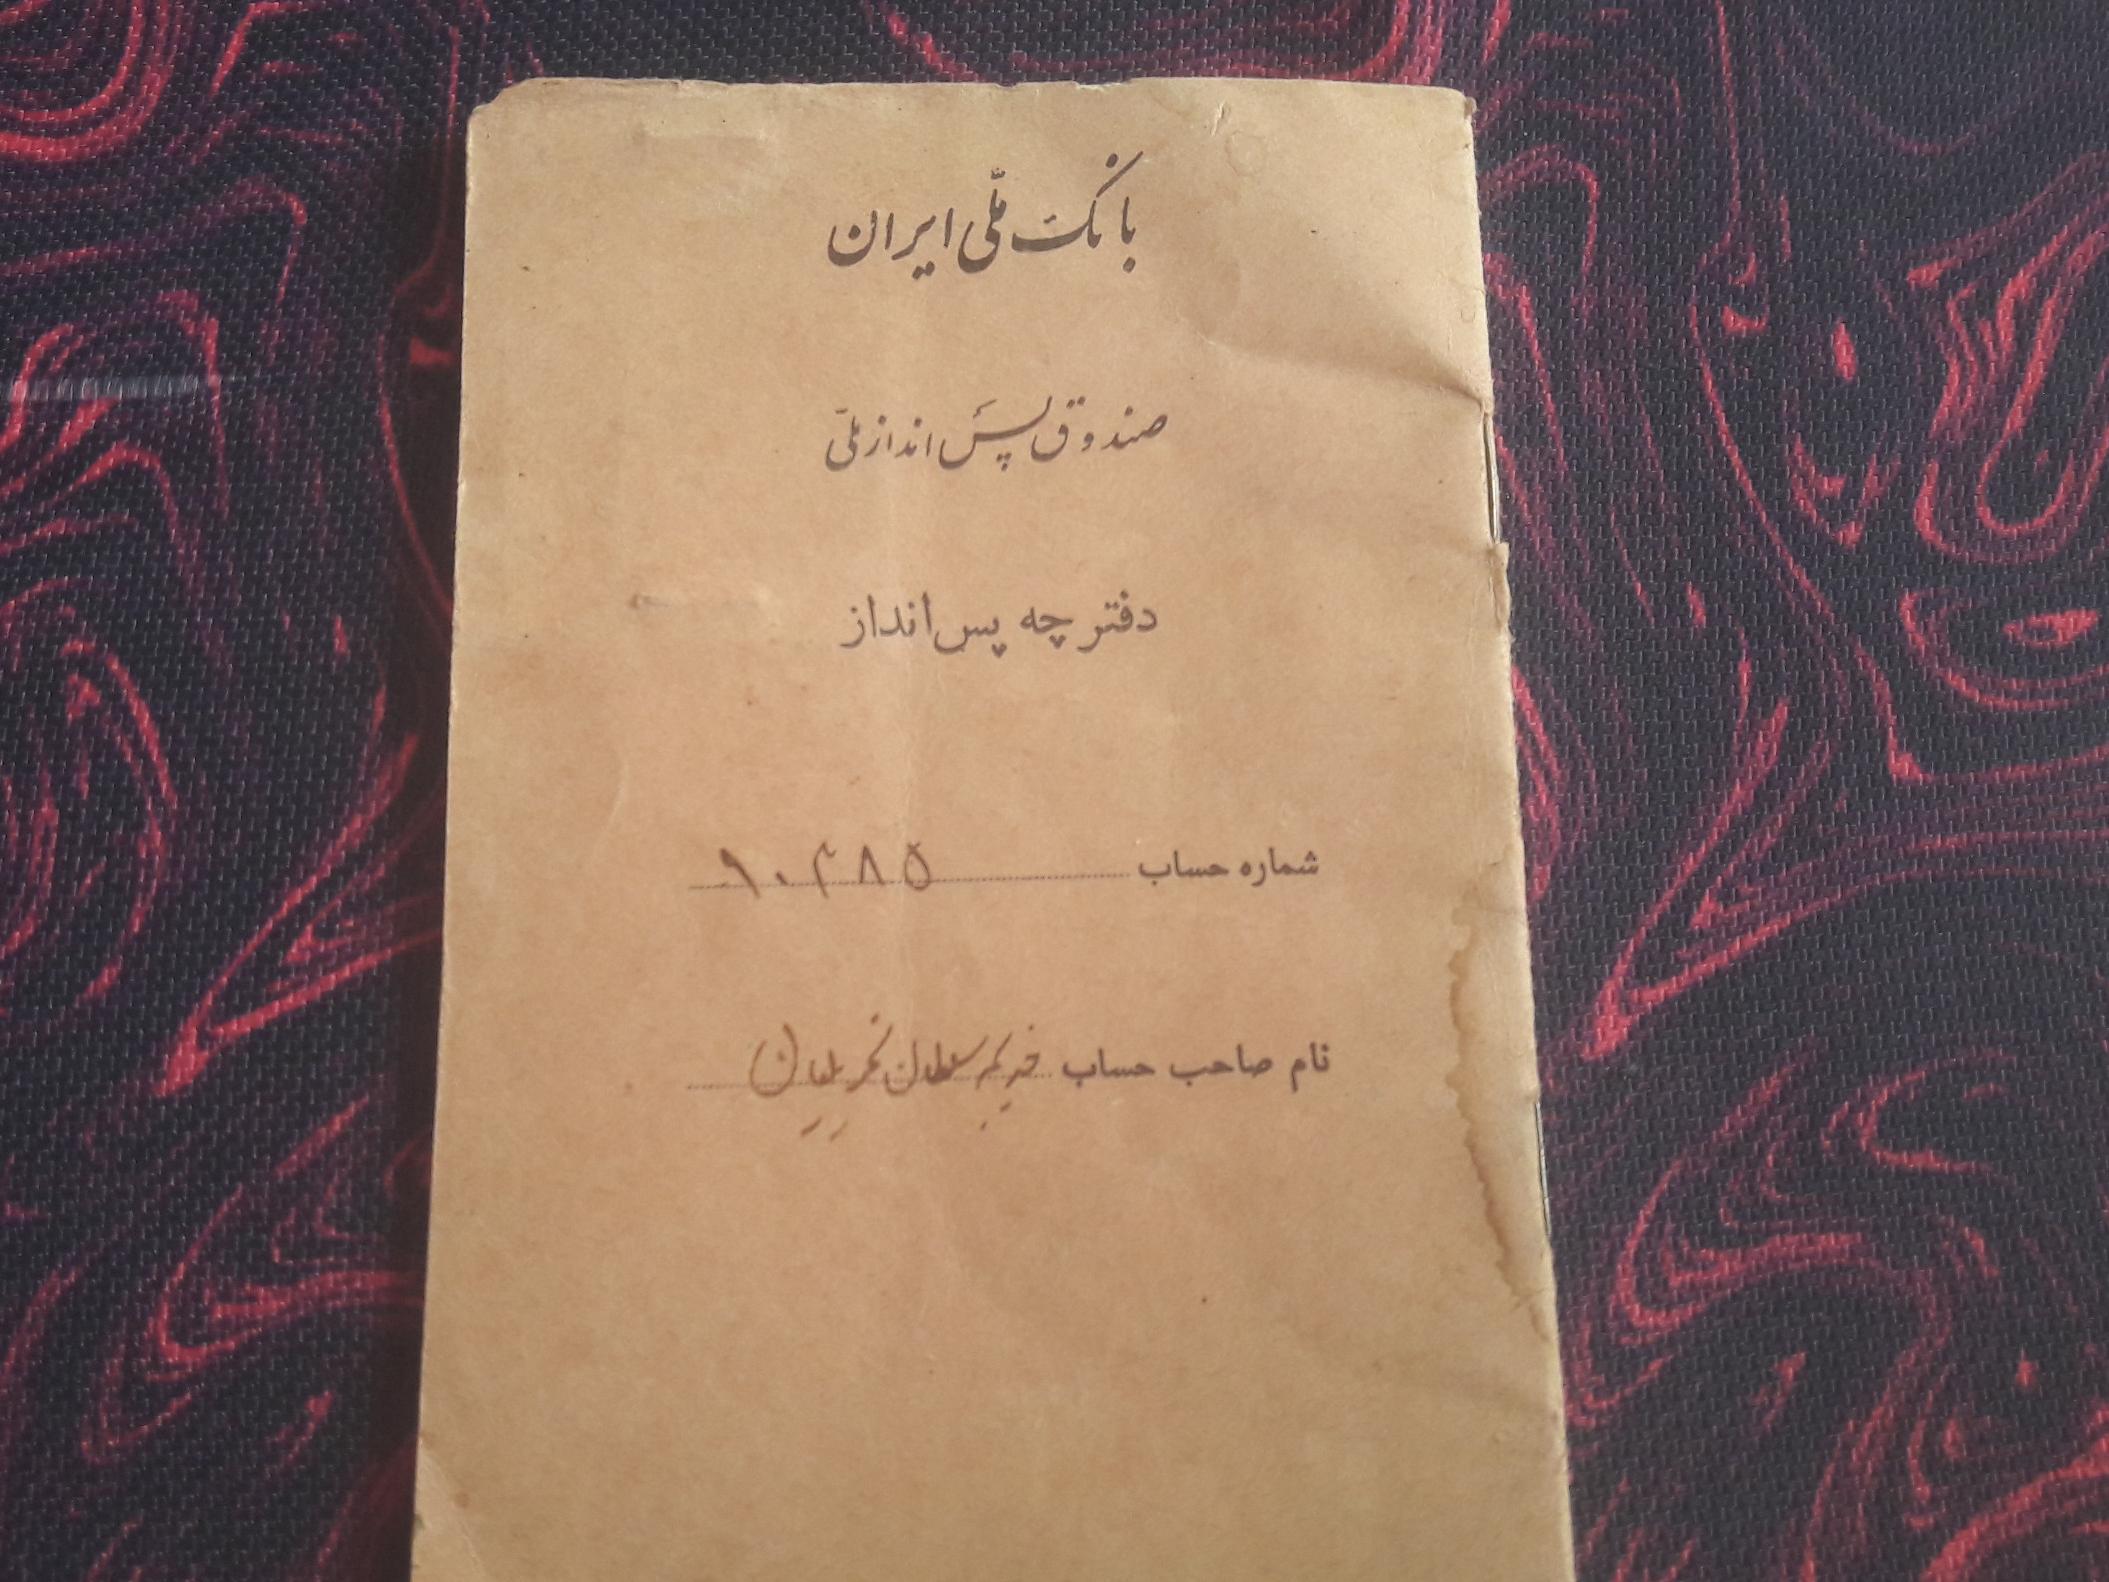 بانک ملّی ایران
صندوق پس انداز ملّی
دفترچه پس‌انداز
شماره حساب ۹۰۴۸۵
نام صاحب حساب خدیجه سلطان